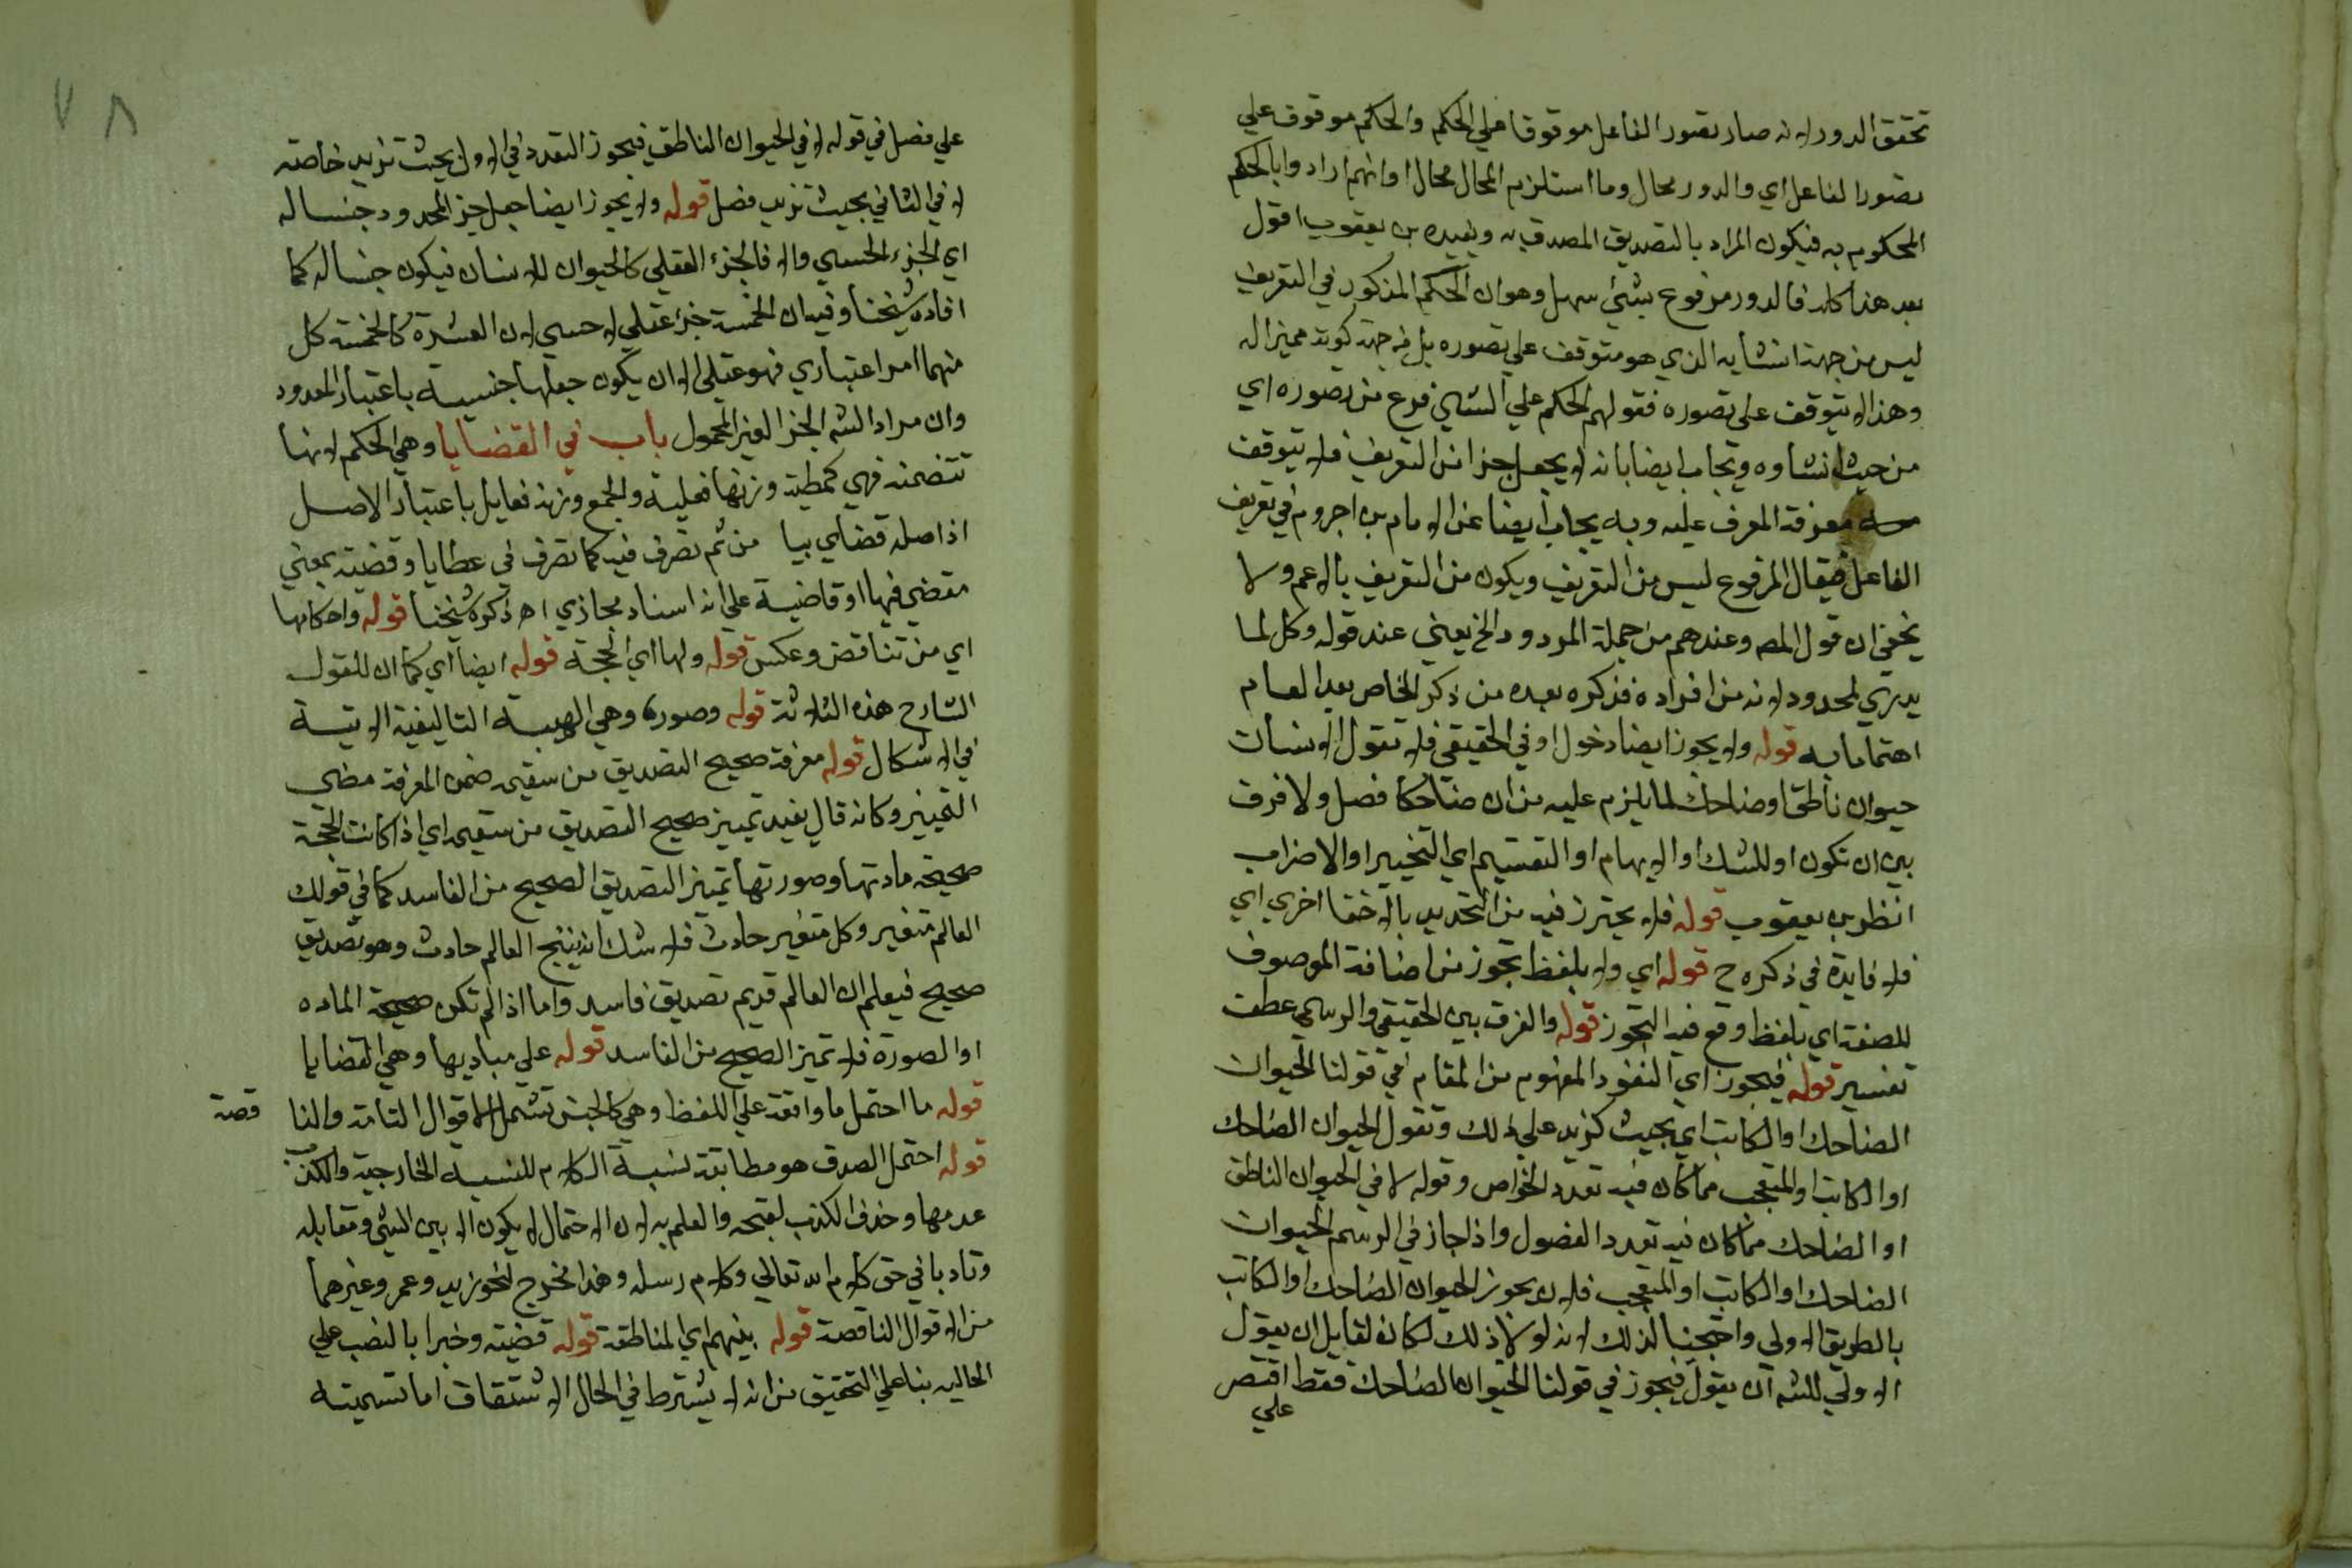 تحقق الدور لانه صار تصور الفاعل موقوفا علي الحكم والحكم موقوف علي
تصور الفاعل اي والدور محال وما استلزم المحال محال او انهم ارادوا بالحكم
المحكوم به فيكون المراد بالتصديق المصدق به ويفيده بن يعقوب اقول
بعد هذا كله فالدور مرفوع بشئ سهل وهو ان الحكم المذكور في التعريف
ليس من جهة انشايه الذي هو متوقف علي تصوره بل من جهة كونه مميزا له
وهذا لا يتوقف علي تصوره فقولهم الحكم علي الشي فرع من تصوره اي
من حيث انشاوه ويجاب ايضا بانه لا يجعل جزا من التعريف فلا يتوقف
معرفة المعرف عليه وبه يجاب ايضا عن الامام بن اجروم في تعريف
الفاعل فيقال المرفوع ليس من التعريف ويكون من التعريف بالاعم ولا
يخفي ان قول المص وعندهم من جملة المردود الخ يعني عند قوله وكل لما
يدري لمحدود لانه من افراده فذكره بعده من ذكر الخاص بعد العام
اهتماما به قوله ولا يجوز ايضا دخول او في الحقيقي فلا تقول الانسان
حيوان ناطق او ضاحك لما يلزم عليه من ان ضاحكا فصل ولا فرق
بين ان تكون او للشك او الابهام او التقسيم اي التخيير او الاضراب
انظر بن يعقوب قوله فلا يحترز فيه من التحديد بالاخفا اخري اي
فلا فايدة في ذكره ح قوله اي ولا بلفظ تجوز من اضافة الموصوف
للصفة اي بلفظ وقع فيه التجوز قوله والفرق بين الحقيقي والرسمي عطف
تفسير قوله فيجوز اي التعدد المفهوم من المقام في قولنا الحيوان
الضاحك او الكاتب اي بحيث كزيد علي ذلك وتقول الحيوان الضاحك
او الكاتب او المتعجب مما كان فيه تعدد الخواص وقوله لا في الحيوان الناطق
او الضاحك مما كان فيه تعدد الفصول واذا جاز في الرسم الحيوان
الضاحك او الكاتب او المتعجب فلان يجوز الحيوان الضاحك او الكاتب
بالطريق الاولي واحتجنا لذلك لانه لولا ذلك لكان لقايل ان يقول
الاولي للشه ان يقول فيجوز في قولنا الحيوان الضاحك فقط اقتصر
علي
٧٨
علي فصل في قوله لا في الحيوان الناطق فيجوز التعدد في الاول بحيث تزيد خاصته
لا في الثاني بحيث تزيد فصل قوله ولا يجوز ايضا جعل جزء المحدود جنسا له
اي الجزء الحسي والا فالجزء العقلي كالحيوان للانسان فيكون جنسا له كما
افاده شيخنا وفيه ان الخمسة جزء عقلي لا حسي لان العشرة كالخمسة كل
منهما امر اعتباري فهو عقلي الا ان يكون جعلها جنسية باعتبار المعدود
وان مراد الشه الجزء الغير المحمول باب في القضايا وهي الحكم لانها
تتضمنه فهي كمطية وزنها فعيلة والجمع وزنه فعايل باعتبار الاصل
اذ اصله قضاي بيا من ثم تصرف فيه كما تصرف في عطايا وقضية بمعني
مقضي فيها او قاضية علي انه اسناد مجازي اه ذكره شيخنا قوله واحكامها
اي من تناقض وعكس قوله ولها اي الحجة قوله ايضا اي كما ان للقول
الشارح هذه الثلاثة قوله وصورة وهي الهيية التاليفية الاتية
في الاشكال قوله معرفة صحيح التصديق من سقيمه ضمن المعرفة معني
التمييز وكانه قال يفيد تمييز صحيح التصديق من سقيمه اي اذا كانت الحجة
صحيحة مادتها وصورتها تميز التصديق الصحيح من الفاسد كما في قولك
العالم متغير وكل متغير حادث فلا شك انه ينتج العالم حادث وهو تصديق
صحيح فيعلم ان العالم قديم تصديق فاسد واما اذا لم تكن صحيحة الماده
او الصورة فلا تميز الصحيح من الفاسد قوله علي مباديها وهي القضايا
قوله ما احتمل ما واقعة علي اللفظ وهي كالجنس تشمل الاقوال التامة والنا
قصة
قوله احتمل الصدق هو مطابقة نسبة الكلام للنسبة الخارجية والكذب
عدمها وحذف الكذب لقبحه والعلم به لان الاحتمال لا يكون الا بين الشئ ومقابله
وتادبا في حق كلام الله تعالي وكلام رسله وهذا مخرج لنحو زيد وعمر وغيرهما
من الاقوال الناقصة قوله بينهم اي المناطقة قوله قضية وخبرا بالنصب علي
الحاليه بنا علي التحقيق من انه لا يشترط في الحال الاشتقاق اما تسميته